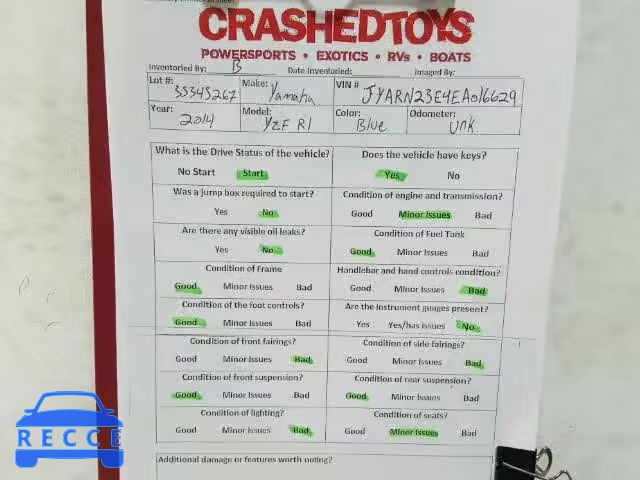 CRASHEDTOYS
POWERSPORTS • EXOTICS • RVs • BOATS
Inventoried By: B Date Inventoried: Imaged By:
Lot #: 35345267 Make: Yamaha VIN # JYARN23E4EA016629
Year: 2014 Model: YZF R1 Color: Blue Odometer: Unk
What is the Drive Status of the vehicle? Does the vehicle have keys?
No Start Start Yes No
Was a jump box required to start? Condition of engine and transmission?
Yes No Good Minor Issues Bad
Are there any visible oil leaks? Condition of Fuel Tank
Yes No Good Minor Issues Bad
Condition of Frame Handlebar and hand controls condition?
Good Minor Issues Bad Good Minor Issues Bad
Condition of the foot controls? Are the instrument guages present?
Good Minor Issues Bad Yes Yes/has issues No
Condition of front fairings? Condition of side fairings?
Good Minor Issues Bad Good Minor Issues Bad
Condition of front suspension? Condition of rear suspension?
Good Minor Issues Bad Good Minor Issues Bad
Condition of lighting? Condition of seats?
Good Minor Issues Bad Good Minor Issues Bad
Additional damage or features worth noting?
RECCE